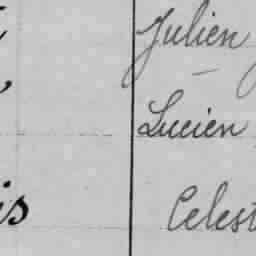 Julien
Lucien
is Celest